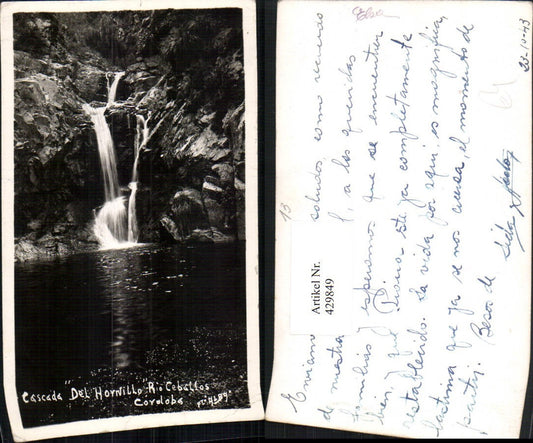 Cascada "Del Hornillo" Rio Ceballos
Cordoba
Elsa
23-10-43
13
Artikel Nr.
429849
Enviamos saludos como recuerdo
de nuestra y a los queridos
familias y esperamos que se encuentren
bien, y que Pisino esté ya completamente
restablecido. La vida por aquí es magnífica,
lástima que ya se nos acerca el momento de
partir. Besos de